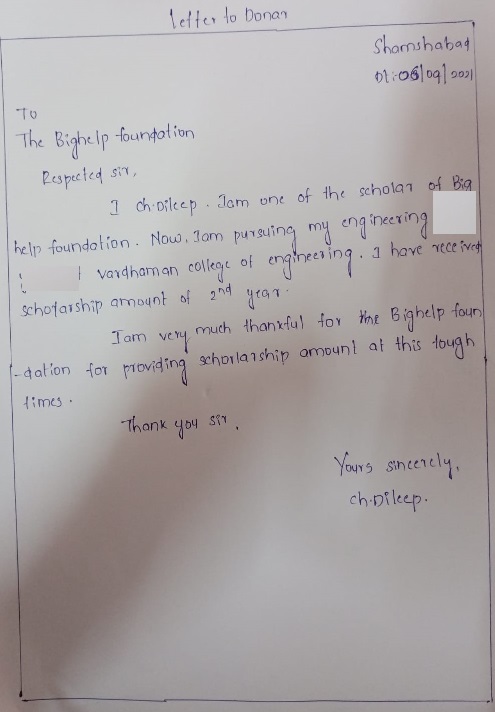 Letter to Donar
Shamshabad
Dt:06/09/2021
To
The Bighelp foundation
Respected sir,
I ch.Dileep. Iam one of the scholar of Big
help foundation. Now, Iam pursuing my engineering
vardhaman college of engineering. I have received
scholarship amount of 2nd year.
Iam very much thankful for the Bighelp foun
-dation for providing schorlarship amount at this tough
times.
Thank you sir.
Yours sincerely,
ch.Dileep.